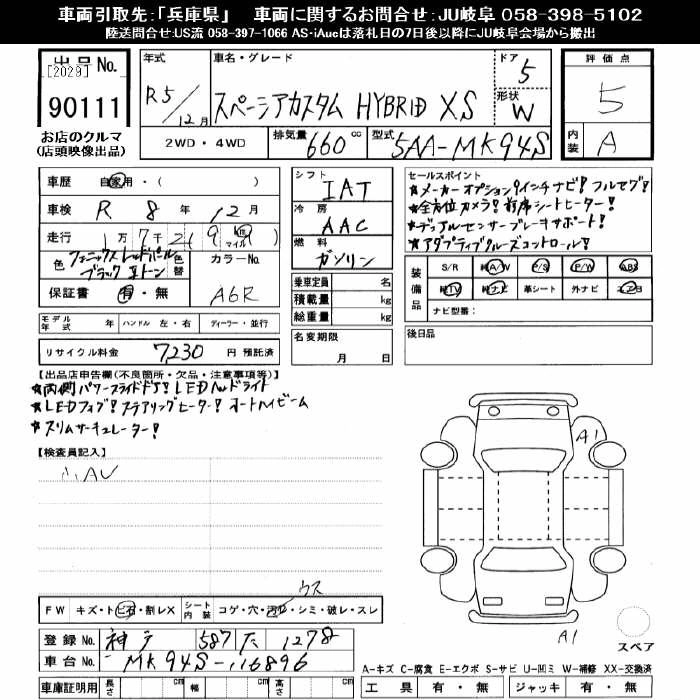 車両引取先:「兵庫県」 車両に関するお問合せ:JU岐阜 058-398-5102
陸送問合せ:US流 058-397-1066 AS-iAucは落札日の7日後以降にJU岐阜会場から搬出
出品No.
[2029]
90111
お店のクルマ
(店頭映像出品)
年式
R5/12月
車名・グレード
スペーシアカスタム HYBRID XS
ドア
5
形状
W
2WD・4WD
排気量
660 cc
型式
5AA-MK94S
評価点
5
内装
A
車歴 自家用・( )
車検 R 8 年 12 月
走行 1万7千2 1 9 km マイル
色 フェニックスレッドパール ブラック2トーン
色替
カラーNo.
A6R
保証書 有・無
モデル年式 年 ハンドル 左・右 ディーラー・並行
リサイクル料金 7230 円 預託済
シフト
IAT
冷房
AAC
燃料
ガソリン
乗車定員 名
積載量 kg
総重量 kg
名変期限
月 日
セールスポイント
★メーカーオプション9インチナビ!フルセグ!
★全方位カメラ!前席シートヒーター!
★デュアルセンサーブレーキサポート!
★アダプティブクルーズコントロール!
装備品
S/R 純A/W P/S P/W ABS
純TV 純ナビ 革シート 外ナビ エアB
ナビ型番:
後日品
【出品店申告欄(不良箇所・欠品・注意事項等)】
★両側パワースライドドア!LEDヘッドライト
★LEDフォグ!ステアリングヒーター!オートハイビーム
★スリムサーキュレーター!
【検査員記入】
小AU
A1
A1
スペア
FW キズ・トビ石・割レX シート内装 コゲ・穴・汚レ・シミ・破レ・スレ
ウス
登録No. 神戸 587 た 1278
車台No. MK94S-116896
車庫証明用 長さ cm 幅 cm 高さ cm
A-キズ C-腐食 E-エクボ S-サビ U-凹ミ W-補修 XX-交換済
工具 有・無 ジャッキ 有・無